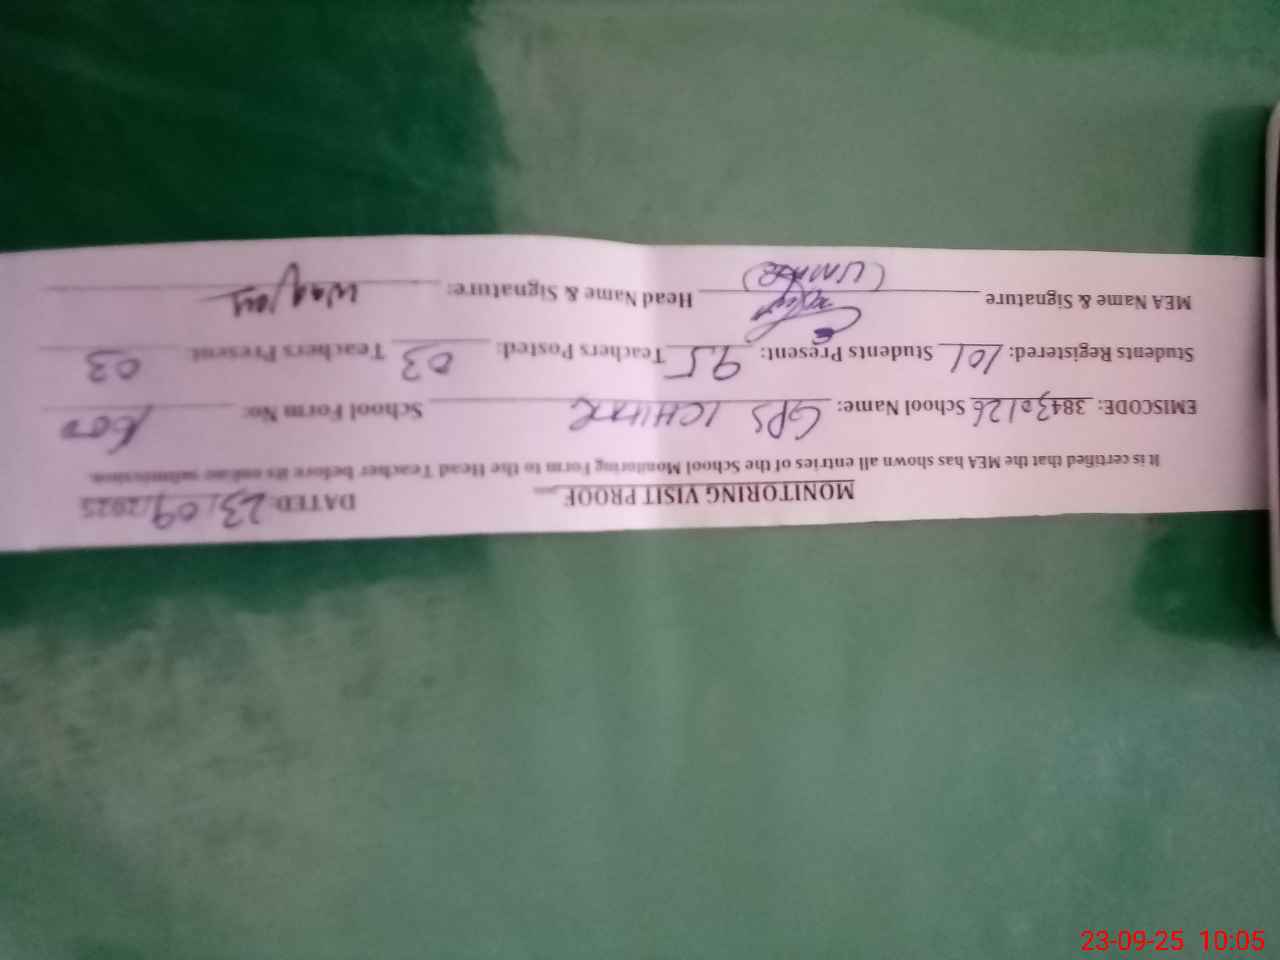 MONITORING VISIT PROOF DATED: 23/09/2025
It is certified that the MEA has shown all entries of the School Monitoring Form to the Head Teacher before its online submission.
EMISCODE: 38430126 School Name: GPS ICHHAR School Form No: 
Students Registered: 101 Students Present: 95 Teachers Posted: 03 Teachers Present: 03
MEA Name & Signature (UMAR) Head Name & Signature: Waqas
23-09-25 10:05